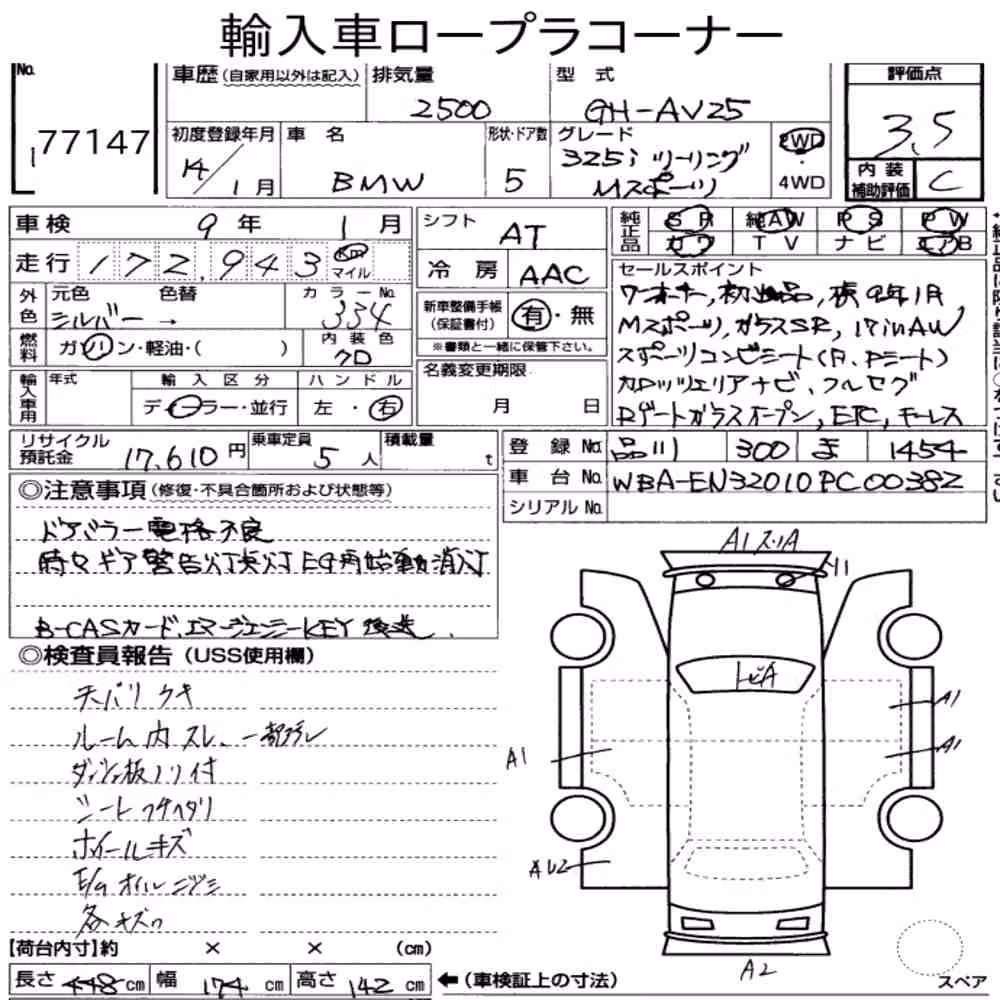 輸入車ロープラコーナー
No. 77147
車歴(自家用以外は記入) 排気量 2500 型式 GH-AV25
評価点 3.5
初度登録年月 14/1月 車名 BMW 形状・ドア数 5 グレード 325i ツーリング Mスポーツ 2WD・4WD
内装補助評価 C
車検 9年 1月 シフト AT
純正品 SR 純AW PS PW
カワ TV ナビ エアB
走行 172,943 Km マイル 冷房 AAC
外色 元色 シルバー 色替 → カラーNo. 334
新車整備手帳(保証書付) 有・無
※書類と一緒に保管下さい。
燃料 ガソリン・軽油・( ) 内装色 クロ
セールスポイント
ワンオーナー,初出品,検9年1月
Mスポーツ,ガラスSR,17inAW
スポーツコンビシート(D,Pシート)
カロッツェリアナビ,フルセグ
Rゲートガラスオープン,ETC,キーレス
輸入車用 年式 輸入区分 ディーラー・並行 ハンドル 左・右
名義変更期限 月 日
リサイクル預託金 17,610円 乗車定員 5人 積載量 t
登録No. 品川 300 ま 1454
車台No. WBA-EN32010PC00382
シリアルNo.
◎注意事項(修復・不具合箇所および状態等)
ドアミラー電格不良
時々ギア警告灯点灯 EG再始動消灯
B-CASカード,エマージェンシーKEY後送
◎検査員報告(USS使用欄)
天バリウキ
ルーム内スレ、
ダッシュ板ノリ付
シートフチヘタリ
ホイールキズ
E/gオイルニジミ
各キズ
A1
Y1
トビA
A1
A1
A1
AU2
A2
スペア
【荷台内寸】約 × × (cm)
長さ 448 cm 幅 174 cm 高さ 142 cm ←(車検証上の寸法)